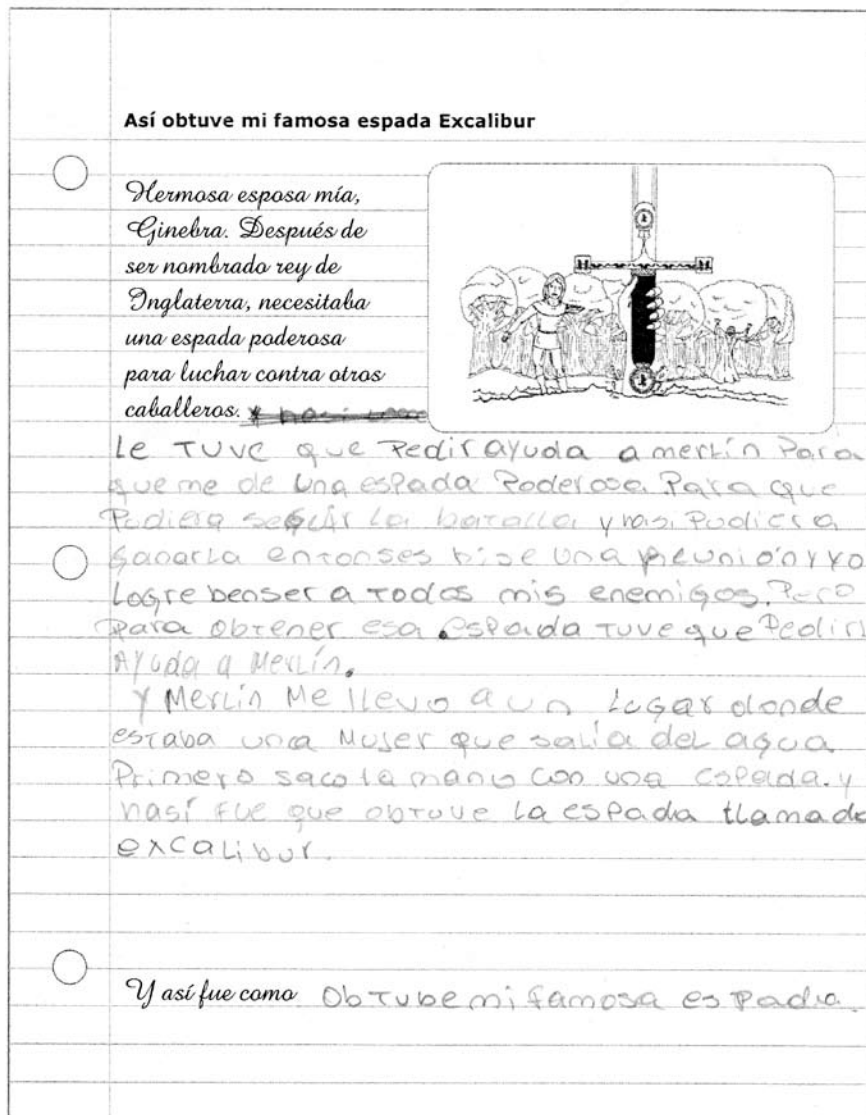 Así obtuve mi famosa espada Excalibur
Hermosa esposa mía,
Ginebra. Después de
ser nombrado rey de
Inglaterra, necesitaba
una espada poderosa
para luchar contra otros
caballeros.
Le TUVE que Pedir ayuda a merlín Para
que me de Una esPada Poderosa. Para que
Pudiera seguir La batalla y hasi Pudiera
ganarla entonses hise Una reunión y yo
Logre benser a Todos mis enemigos. Pero
Para obtener esa esPada Tuve que Pedir
Ayuda a MerLín.
Y MerLin Me llevo a un Lugar donde
esTaba una Mujer que salía del agua
Primero saco la mano con una esPada. y
hasí fue que obTuve La esPada llamada
excaLibur.
Y así fue como ObTube mi famosa esPada.